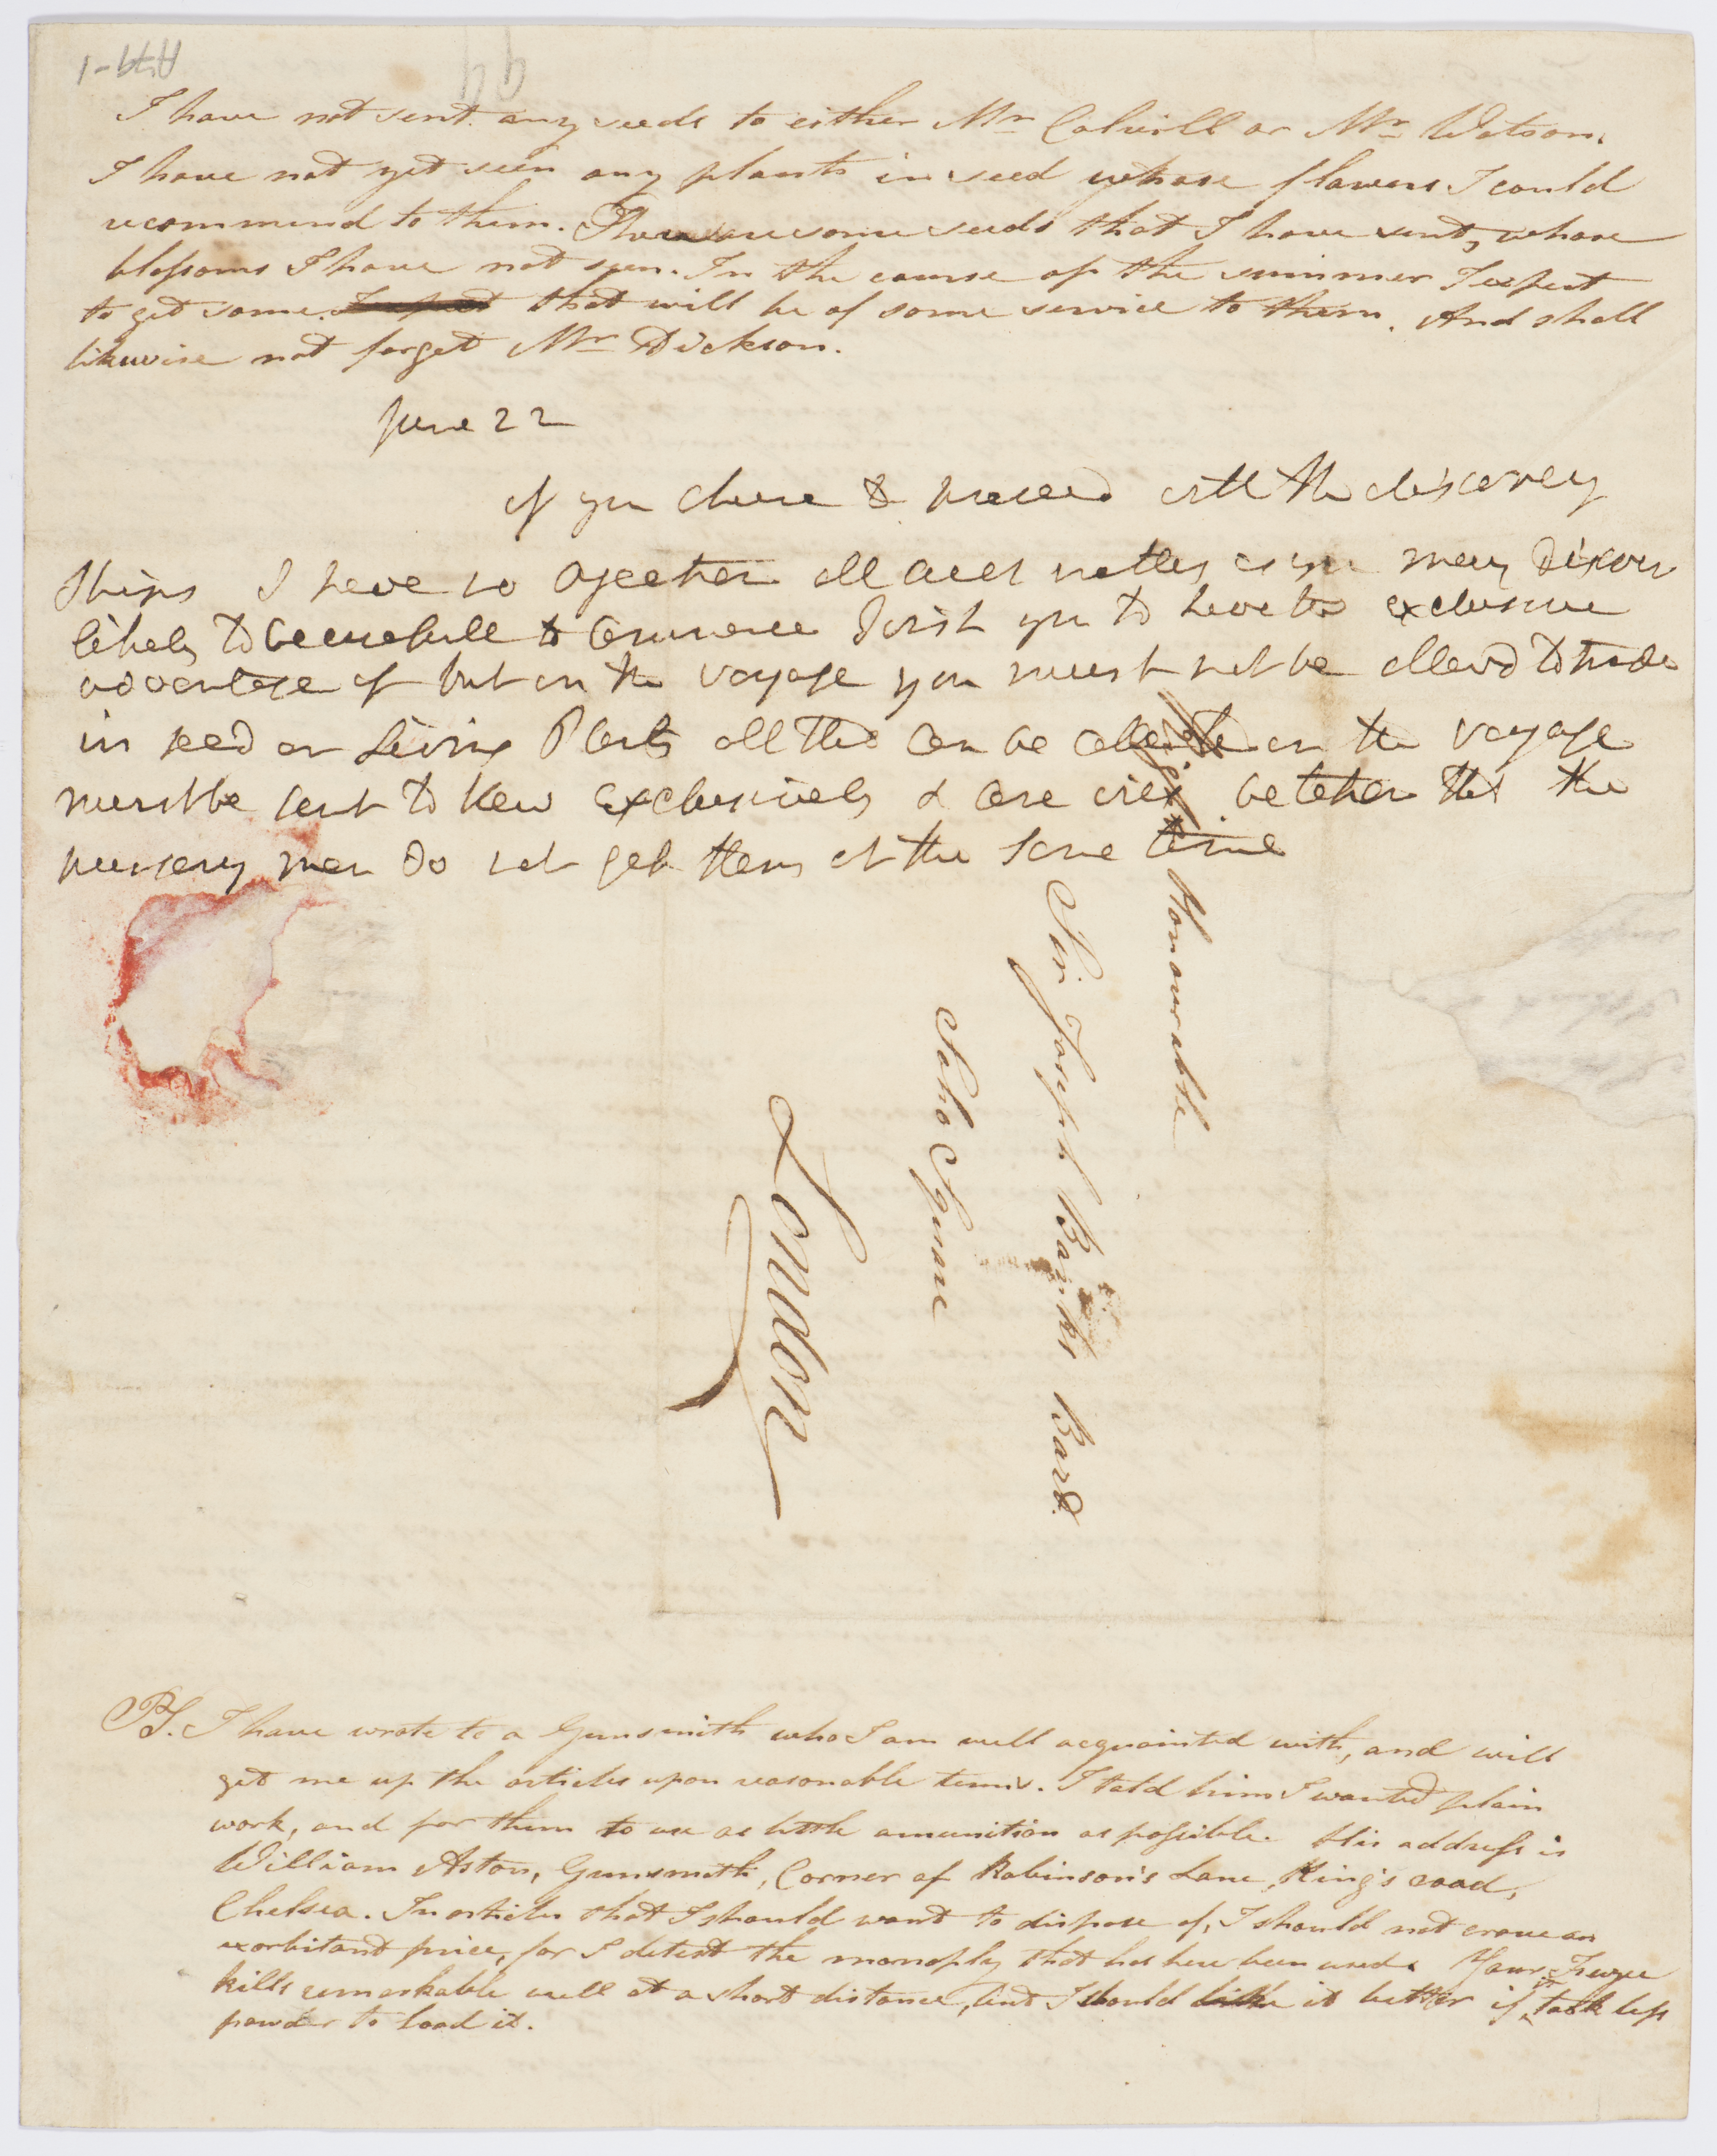 A79-1
I have not sent any seeds to either Mr Colvill or Mr Watson.
I have not yet seen any plants in seed whose flowers I could
recommend to them. There are some seeds that I have sent, whose
blossoms I have not seen. In the course of the summer I expect
to get some that will be of some service to them. And shall
likewise not forget Mr Dickson.
June 22
if you chuse to proceed with the discovery
Ships I have no objection all such matters as you may discover
likely to be usefull to Commerce I wish you to have the exclusive
advantage of but on the voyage you must not be allowd to trade
in seed or Living Plants all that can be collected on the voyage
must be sent to Kew exclusively & care must be taken that the
nursery men do not get them at the same time
Right Honourable
Sir Joseph Banks Bart.
Soho Square
London
PS. I have wrote to a Gunsmith who I am well acquainted with, and will
get me up the articles upon reasonable terms. I told him I wanted plain
work, and for them to use as little amunition as possible. His address is
William Aston, Gunsmith, Corner of Robinson's Lane, King's road,
Chelsea. In articles that I should want to dispose of, I should not crave an
exorbitant price, for I detest the monoply that has here been used. Your Fuzee
kills remarkable well at a short distance, but I should like it better if it took less
powder to load it.